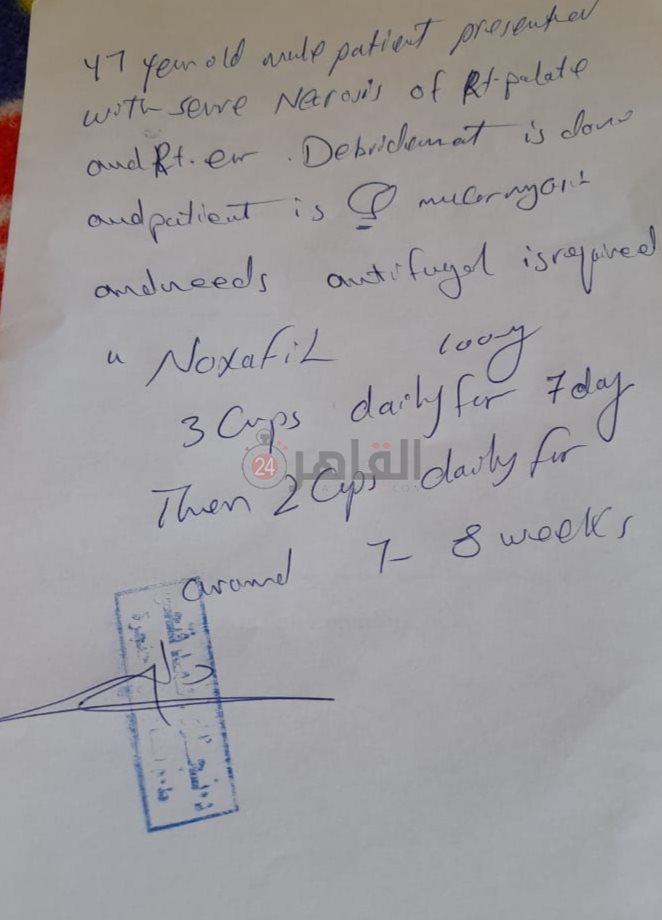 47 year old male patient presented
with severe Necrosis of Rt. palate
and Rt. ear. Debridement is done
and patient is ? mucormycosis
and needs antifugel is required
" NOXAFIL 100mg
3 Cups daily for 7 day
القاهرة 24
Then 2 Cups daily for
around 7- 8 weeks